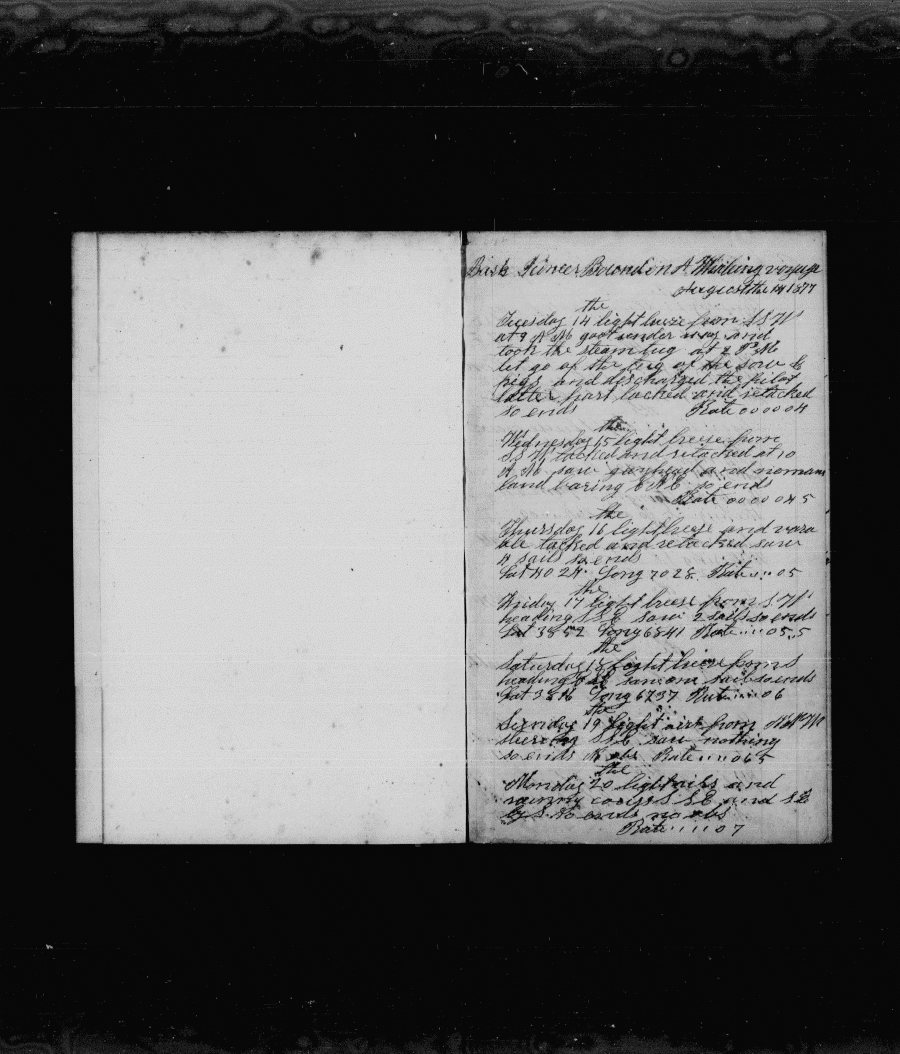 Bark Pioneer Bound on A Whaling voyage
August the 14 1877
the
Tuesday 14 light breeze from SSW
at 9 A M got under way and
took the steam tug at 2 P M
let go of the tug of the sow &
pigs and discharged the pilot
latter part tacked and retacked
so ends Rate 00 00 04
the
Wednesday 15 light breeze from
SSW tacked and retacked at 10
A M saw gayhead and nomans
land baring so ends
Rate 00 00 04 5
the
Thursday 16 light breese and vara
ble tacked and retacked saw
4 sails so ends
Lat 40 24 Long 70 28 Rate 05
the
Friday 17 light breese from S W
heading SSE saw 2 sails so ends
Lat 38 52 Long 68 41 Rate 05.5
the
Saturday 18 light breese from S
heading saw one sail so ends
Long 67 37 Rate 06
the
Sunday 19 light airs from
stering SSE saw nothing
so ends No obs Rate 06 5
the
Monday 20 light airs and
rainny corse SSE and SE
by S So ends no obs
Rate 07